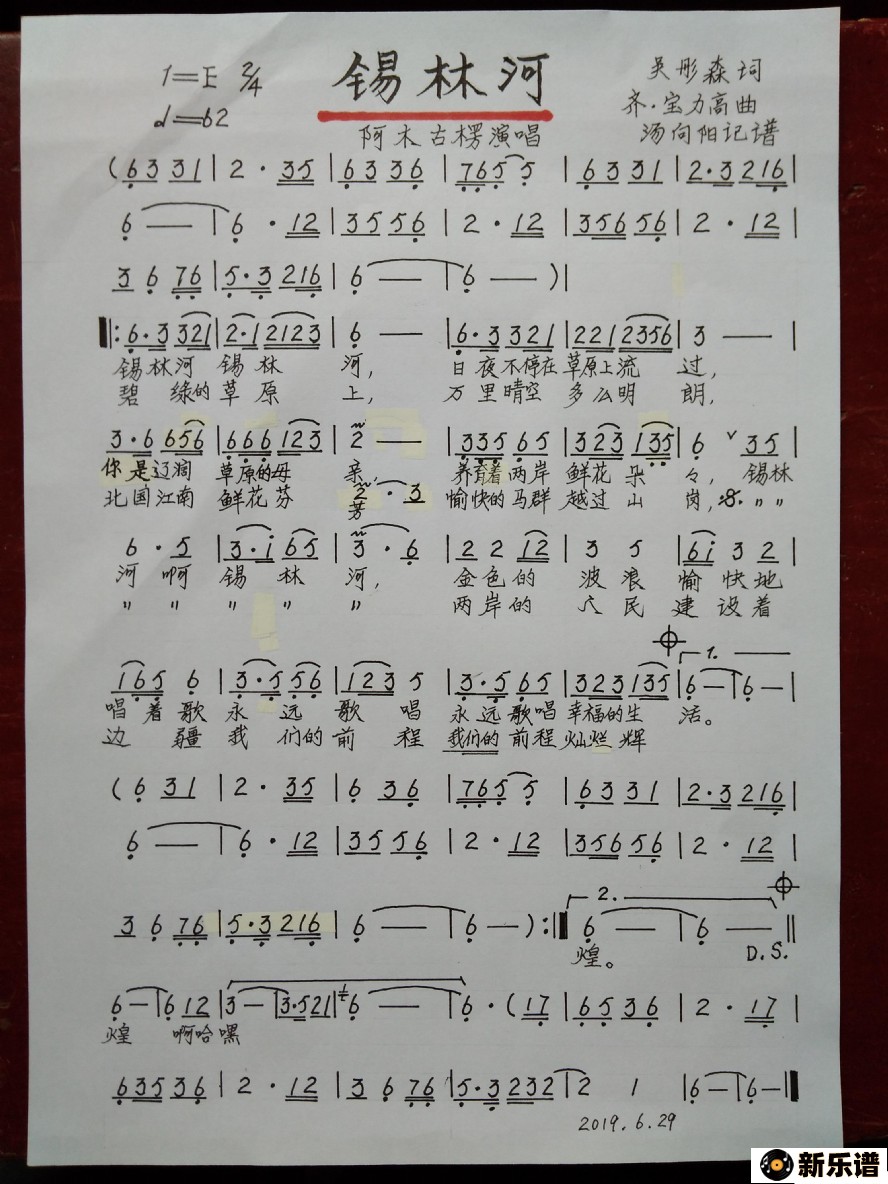 锡林河
1=E 2/4
♩=62
阿木古楞演唱
吴彤森词
齐·宝力高曲
汤向阳记谱
(6 3 3 1 | 2 · 3 5 | 6 3 3 6 | 7 6 5 5 | 6 3 3 1 | 2 · 3 2 1 6 |
6 — | 6 · 1 2 | 3 5 5 6 | 2 · 1 2 | 3 5 6 5 6 | 2 · 1 2 |
3 6 7 6 | 5 · 3 2 1 6 | 6 — | 6 — ) |
‖: 6 · 3 3 2 1 | 2 · 1 2 1 2 3 | 6 — | 6 · 3 3 2 1 | 2 2 1 2 3 5 6 | 3 — |
锡林河 锡林 河, 日夜不停在草原上流 过,
碧绿的草原 上, 万里晴空 多么明 朗,
3 · 6 6 5 6 | 6 6 6 1 2 3 | 2 — | 3 3 5 6 5 | 3 2 3 1 3 5 | 6 ∨ 3 5 |
你是辽阔 草原的母 亲 养育着两岸 鲜花 朵 々, 锡林
北国江南 鲜花芬 芳 2 · 3 愉快的马群 越过 山 岗, 𝄋 〃 〃
6 · 5 | 3 · i 6 5 | 3 · 6 | 2 2 1 2 | 3 5 | 6 i 3 2 |
河 啊 锡 林 河, 金色的 波 浪 愉 快 地
〃 〃 〃 〃 〃 两岸的 人 民 建 设 着
𝄌 1.
1 6 5 6 | 3 · 5 5 6 | 1 2 3 5 | 3 · 5 6 5 | 3 2 3 1 3 5 | 6 — | 6 — |
唱着歌 永 远 歌 唱 永远歌唱 幸福的生 活。
边 疆 我 们的 前 程 我们的 前程 灿烂 辉
(6 3 1 | 2 · 3 5 | 6 3 6 | 7 6 5 5 | 6 3 3 1 | 2 · 3 2 1 6 |
6 — | 6 · 1 2 | 3 5 5 6 | 2 · 1 2 | 3 5 6 5 6 | 2 · 1 2 |
2. 𝄌
3 6 7 6 | 5 · 3 2 1 6 | 6 — | 6 — ) :‖ 6 — | 6 — ‖
煌。 D.S.
6 — | 6 1 2 | 3 — | 3 · 5 2 1 | 6 — | 6 · (1 7 | 6 5 3 6 | 2 · 1 7 |
煌 啊哈嘿
6 3 5 3 6 | 2 · 1 2 | 3 6 7 6 | 5 · 3 2 3 2 | 2 1 | 6 — | 6 — ‖
2019.6.29
新乐谱